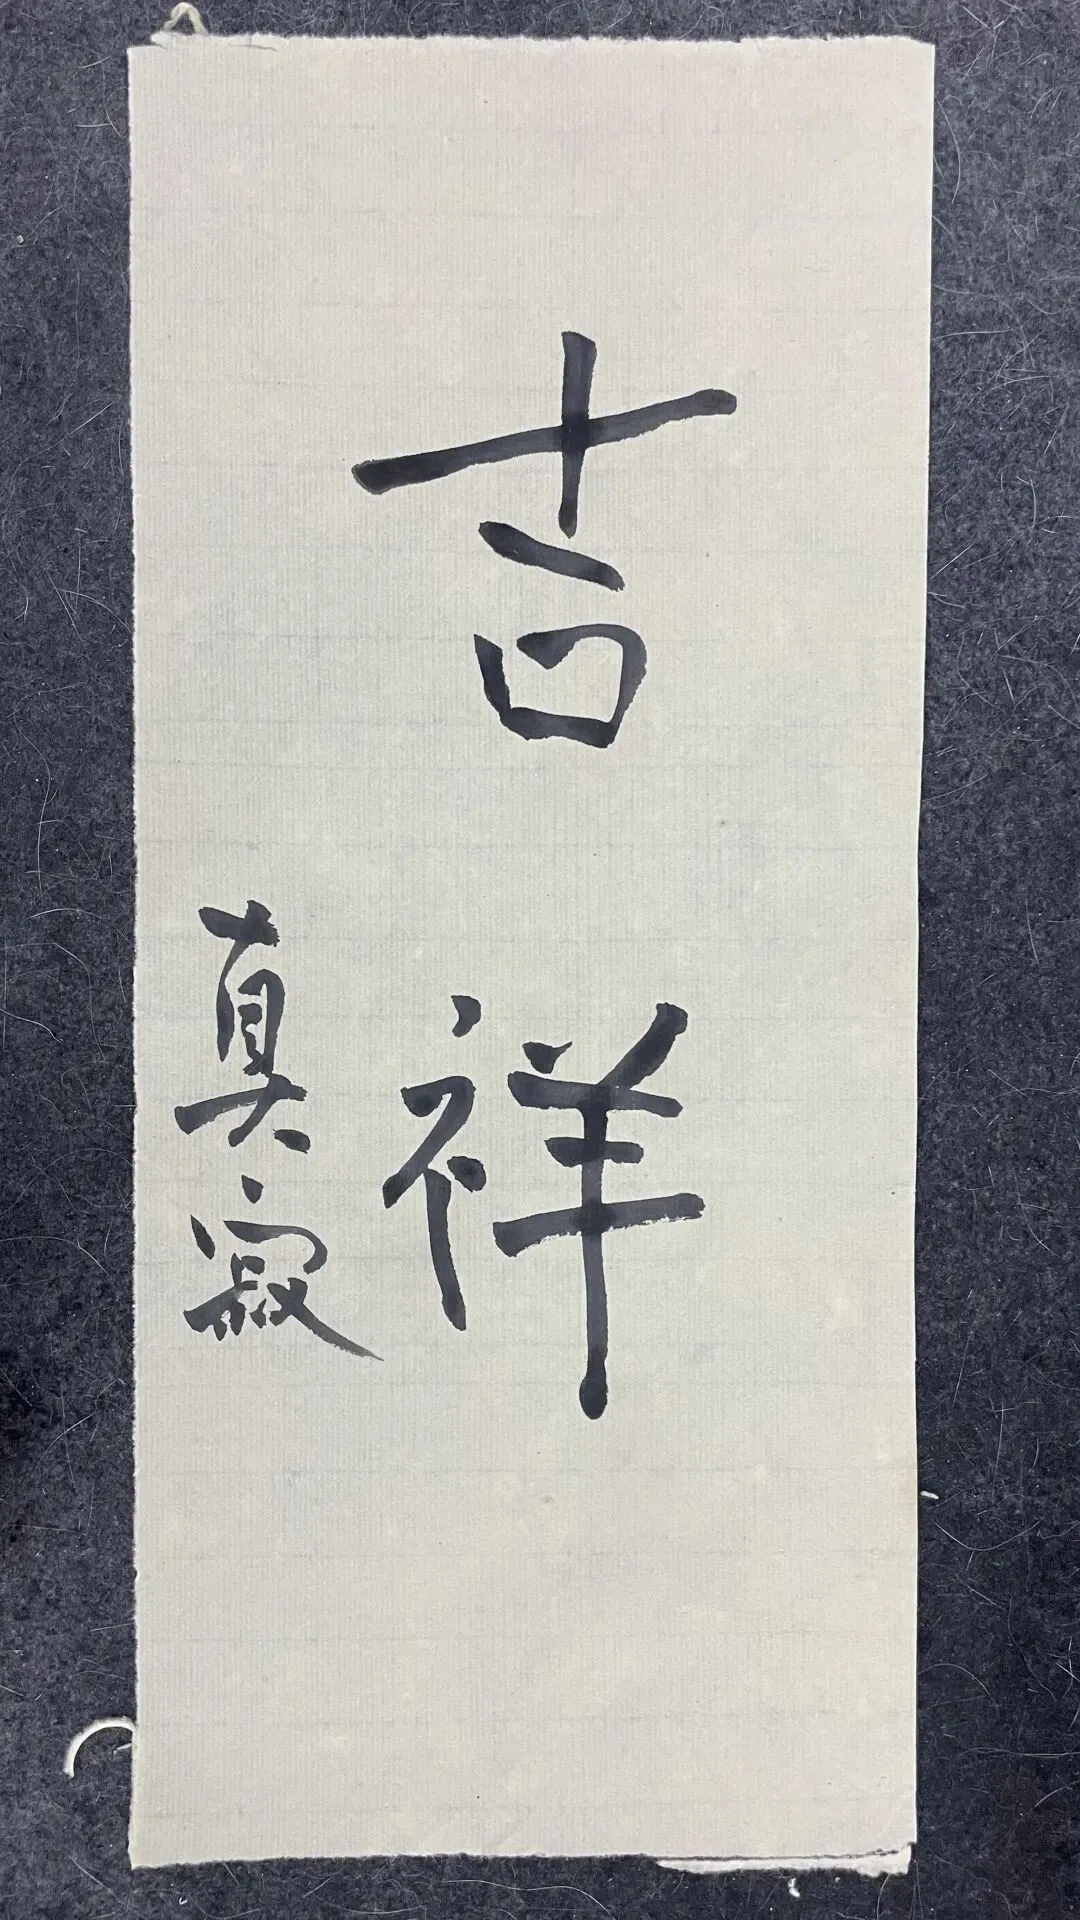 吉祥
真寂